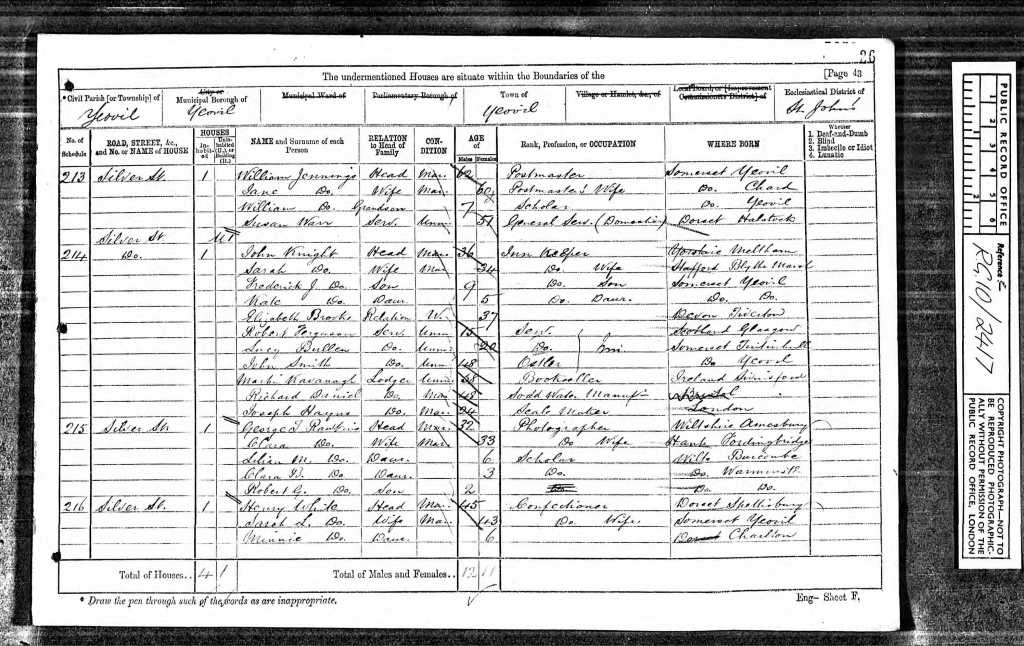 26
The undermentioned Houses are situate within the Boundaries of the
[Page 43
* Civil Parish [or Township] of
Yeovil
City or
Municipal Borough of
Yeovil
Municipal Ward of
Parliamentary Borough of
Town of
Yeovil
Village or Hamlet, &c., of
Local Board, or [Improvement
Commissioners District] of
Ecclesiastical District of
St. John's
No. of Schedule
ROAD, STREET, &c., and No. or NAME of HOUSE
HOUSES
In-habit-ed
Unin-habited (U.), or Building (B.)
NAME and Surname of each Person
RELATION to Head of Family
CON-DITION
AGE of
Males
Females
Rank, Profession, or OCCUPATION
WHERE BORN
Whether
1. Deaf-and-Dumb
2. Blind
3. Imbecile or Idiot
4. Lunatic
213 Silver St. 1 William Jennings Head Mar. 62 Postmaster Somerset Yeovil
Jane Do. Wife Mar. 60 Postmaster's Wife Do. Chard
William Do. Grandson 7 Scholar Do. Yeovil
Susan Warr Serv. Unm. 51 General Serv. (Domestic) Dorset Halstock
Silver St. 1U
214 Do. 1 John Knight Head Mar. 36 Inn Keeper Meltham
Sarah Do. Wife Mar. 34 Do. Wife Stafford Blythe Marsh
Frederick J. Do. Son 9 Do. Son Somerset Yeovil
Kate Do. Daur. 5 Do. Daur. Do. Do.
Elizabeth Brooke Relation 37 Devon Tiverton
Robert Ferguson Serv. Unm. 15 Serv. Scotland Glasgow
Lucy Bullen Do. Unm. 20 Do. Inn Somerset Tintinhull
John Smith Do. Unm. 48 Ostler Do. Yeovil
Martin Kavanagh Lodger Unm. 38 Bookseller Ireland
Richard Daniel Do. Mar. 48 Soda Water Manuf. Bristol
Joseph Hayne Do. Mar. 24 Scale Maker London
215 Silver St. 1 George T. Rawkins Head Mar. 32 Photographer Wiltshire Amesbury
Clara Do. Wife Mar. 33 Do. Wife Hants Fordingbridge
Lilian M. Do. Daur. 6 Scholar Wilts Burcombe
Clara B. Do. Daur. 3 Do. Do. Warminster
Robert G. Do. Son 2 Do. Do. Do.
216 Silver St. 1 Henry White Head Mar. 45 Confectioner Dorset Spettisbury
Sarah L. Do. Wife Mar. 43 Do. Wife Somerset Yeovil
Minnie Do. Daur. 6 Dorset Charlton
Total of Houses.. 4 1 Total of Males and Females.. 12 11
* Draw the pen through such of the words as are inappropriate.
Eng- Sheet F.
PUBLIC RECORD OFFICE
1 2 3 4 5 6
Reference:-
RG10/2417
COPYRIGHT PHOTOGRAPH—NOT TO BE REPRODUCED PHOTOGRAPHIC-ALLY WITHOUT PERMISSION OF THE PUBLIC RECORD OFFICE, LONDON